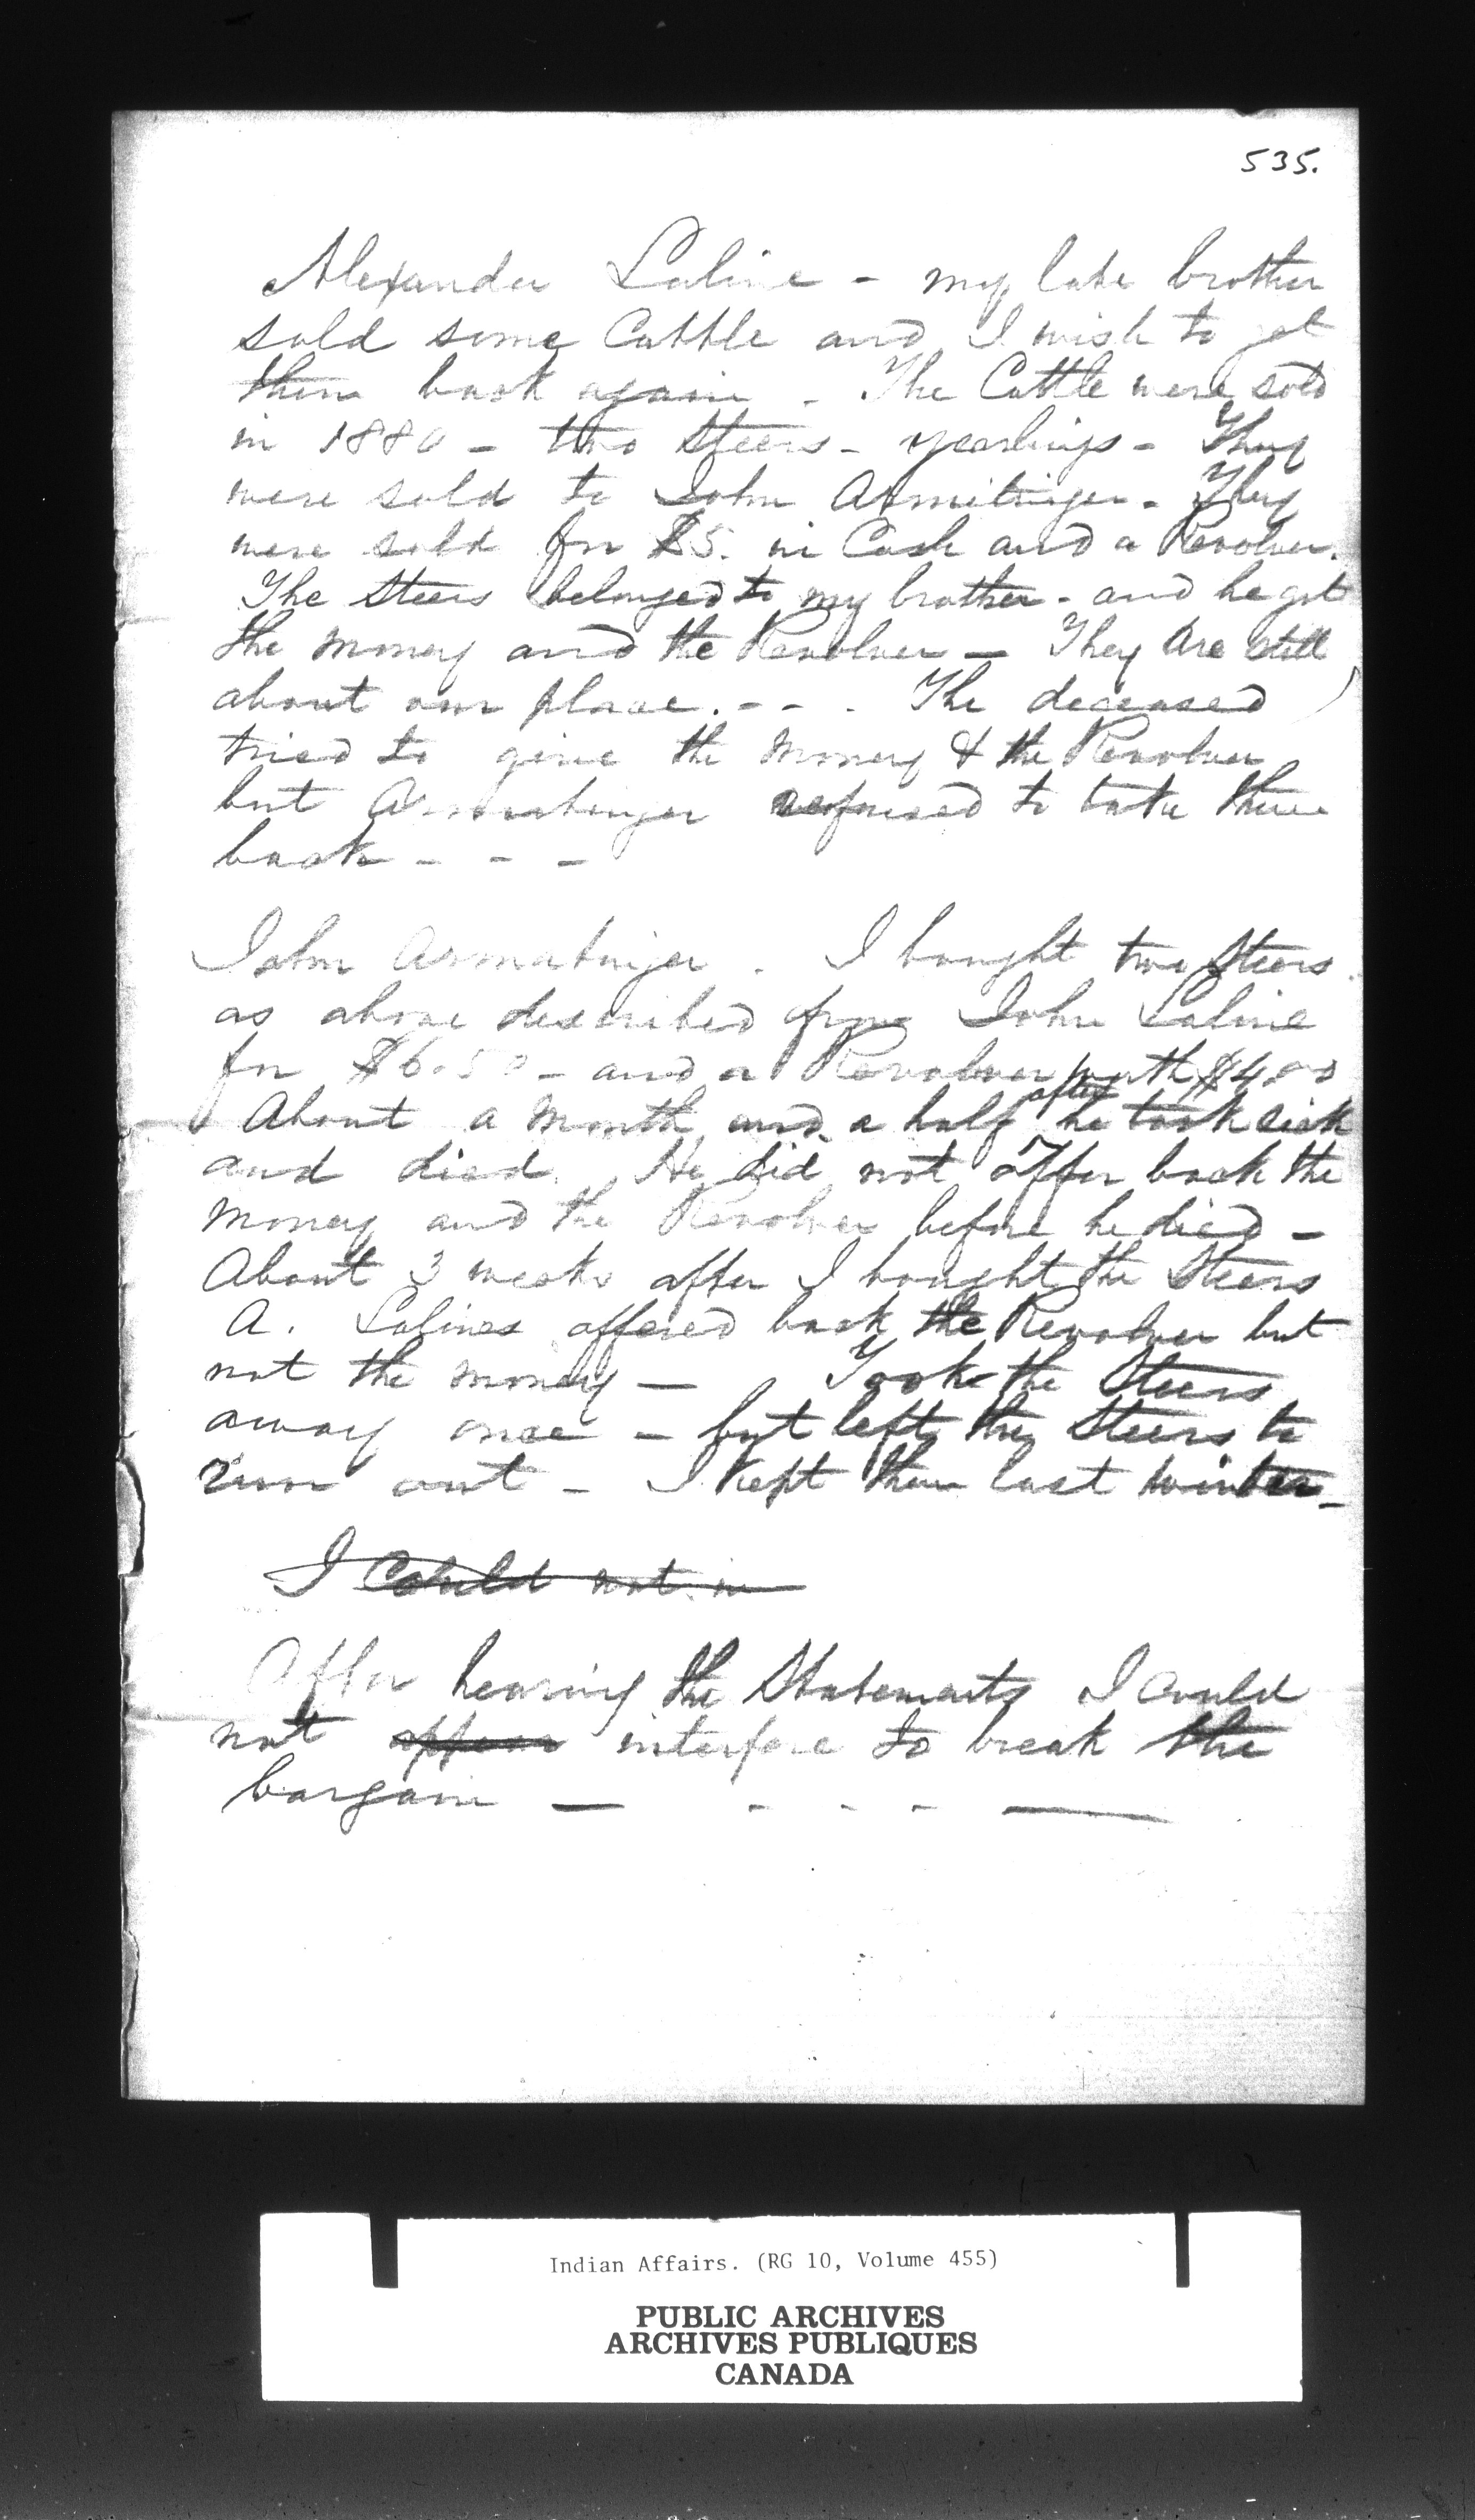 535.
Alexander Laline - my late brother
sold some Cattle and I wish to get
them back again - The Cattle were sold
in 1880 - two steers - yearlings - They
were sold to John Armitinger - They
were sold for $5. in Cash and a Revolver.
The steers belonged to my brother - and he got
the money and the Revolver - They are still
about our place. - - . The deceased
tried to give the money & the Revolver
but Armatinger refused to take them
back - - -
John Armatinger . I bought two steers
as above described from John Laline
for $6.50 - and a Revolver worth $4.00
About a month and a half after he took sick
and died. He did not offer back the
money and the Revolver before he died -
About 3 weeks after I bought the steers
A. Lalines offered back the Revolver but
not the money - Took the steers
away once - but left the steers to
run out - I kept them last winter -
I Could not in
After hearing the Statements I could
not appear interfere to break the
bargain — - - - —
Indian Affairs. (RG 10, Volume 455)
PUBLIC ARCHIVES
ARCHIVES PUBLIQUES
CANADA